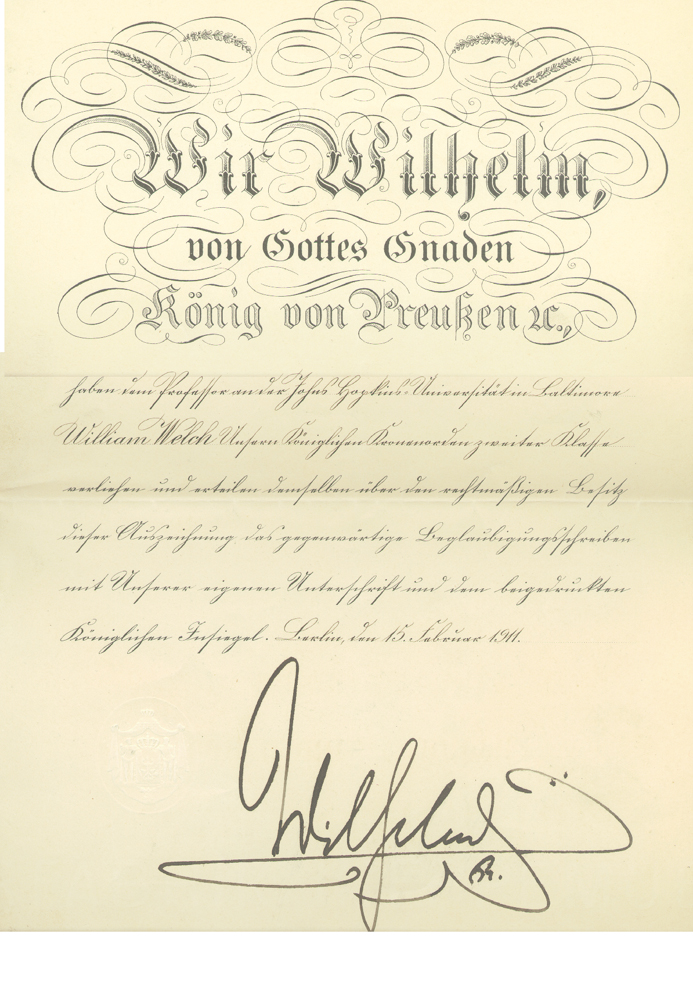 Wir Wilhelm,
von Gottes Gnaden
König von Preußen ꝛc.,
haben dem Professor an der Johns Hopkins-Universität in Baltimore
William Welch Unsern Königlichen Kronenorden zweiter Klasse
verliehen und erteilen demselben über den rechtmäßigen Besitz
dieser Auszeichnung das gegenwärtige Beglaubigungsschreiben
mit Unserer eigenen Unterschrift und dem beigedruckten
Königlichen Insiegel. Berlin, den 15. Februar 1911.
Wilhelm
R.